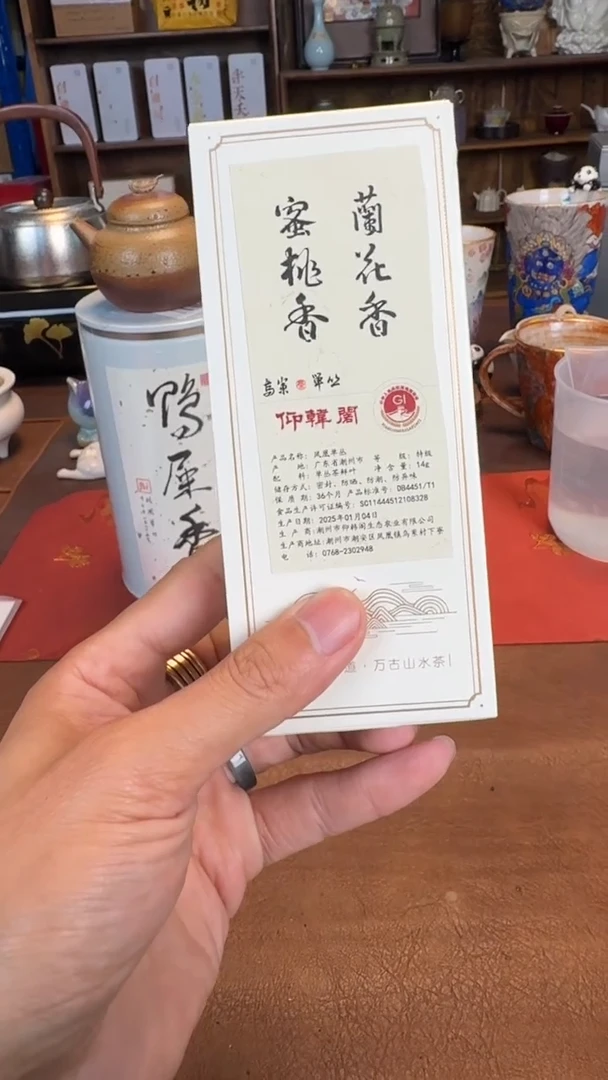 蘭花香
蜜桃香
高崬 單丛
仰韓閣
GI
产品名称: 凤凰单丛 等 级: 特级
产 地: 广东省潮州市 净 含 量: 14g
配 料: 单丛茶鲜叶
储存方式: 密封、防晒、防潮、防异味
保 质 期: 36个月 产品标准号: DB4451/11
食品生产许可证编号: SC11644512108328
生产日期: 2025年01月04日
生 产 商: 潮州市仰韩阁生态农业有限公司
生产商地址: 潮州市潮安区凤凰镇乌岽村下寮
电 话: 0768-2302948
道·万古山水茶
鸭屎香